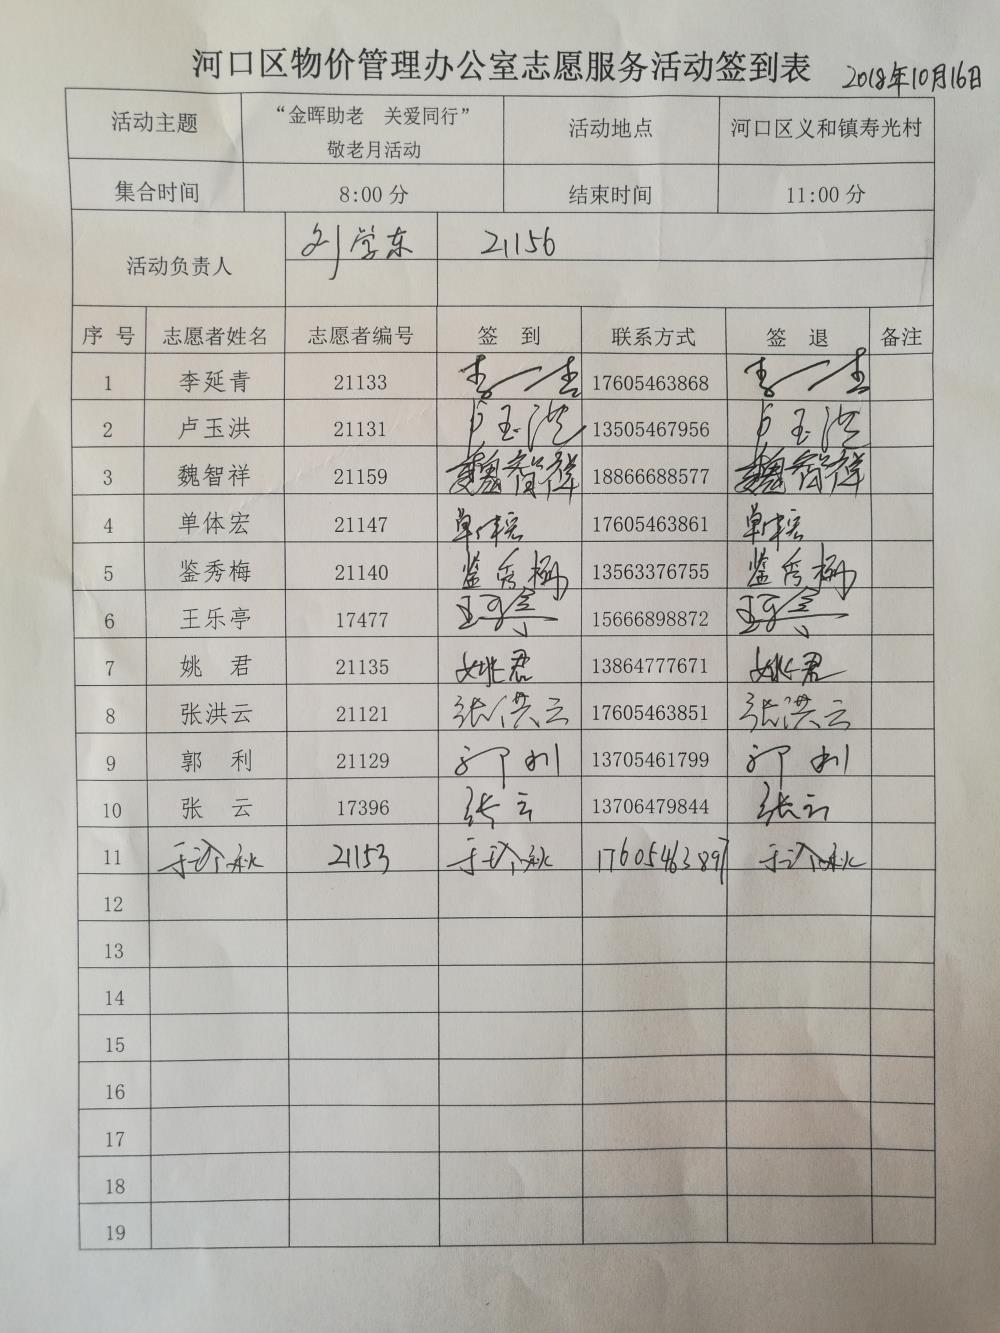 河口区物价管理办公室志愿服务活动签到表 2018年10月16日
活动主题 “金晖助老 关爱同行” 敬老月活动 活动地点 河口区义和镇寿光村
集合时间 8:00分 结束时间 11:00分
活动负责人 刘学东 21156
序号 志愿者姓名 志愿者编号 签 到 联系方式 签 退 备注
1 李延青 21133 17605463868
2 卢玉洪 21131 卢玉洪 13505467956 卢玉洪
3 魏智祥 21159 魏智祥 18866688577 魏智祥
4 单体宏 21147 单体宏 17605463861 单体宏
5 鉴秀梅 21140 鉴秀梅 13563376755 鉴秀梅
6 王乐亭 17477 15666898872
7 姚 君 21135 姚君 13864777671 姚君
8 张洪云 21121 张洪云 17605463851 张洪云
9 郭 利 21129 郭利 13705461799 郭利
10 张 云 17396 张云 13706479844 张云
11 21153 17605463897
12
13
14
15
16
17
18
19